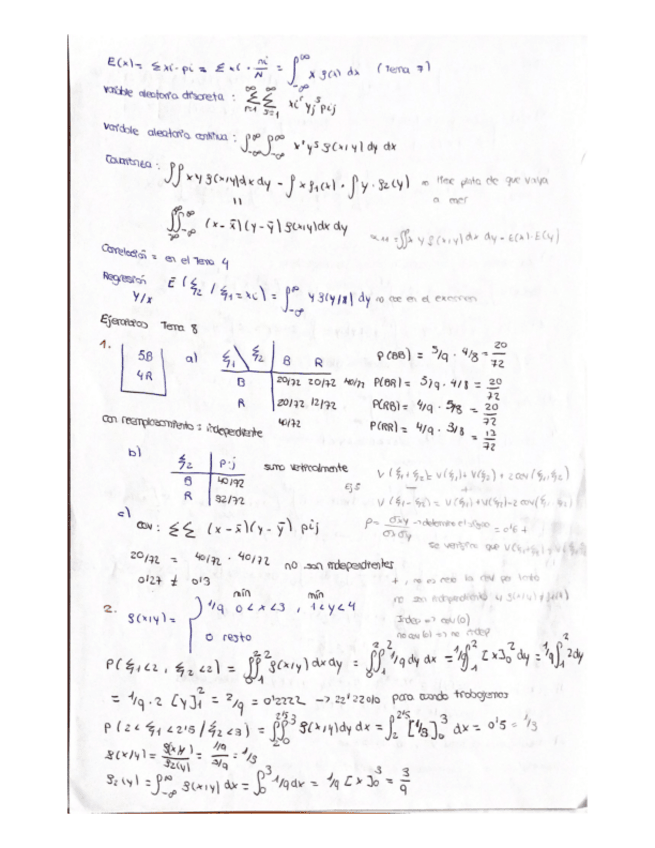 E(x) = Σxi·pi = Σxi · ni/N = ∫_{-∞}^{∞} x g(x) dx (Tema 7)
variable aleatoria discreta : Σ Σ xi^r yj^s pij
variable aleatoria continua : ∫_{-∞}^{∞} ∫_{-∞}^{∞} x^r y^s g(x,y) dy dx
Covarianza : ∫∫ x y g(x,y) dx dy - ∫ x g1(x) · ∫ y · g2(y) = de que vaya
a
=
∫∫ (x-x̄)(y-ȳ) g(x,y) dx dy
= ∫∫ x y g(x,y) dx dy - E(x)·E(y)
Correlación = en el Tema 4
Regresión E(ξ2 / ξ1 = xi) = ∫_{-∞}^{∞} y g(y/x) dy no cae en el examen
Y/X
Ejercicios Tema 8
1. 5B 4R
a) ξ1 \ ξ2 B R
B 20/72 20/72 40/72
R 20/72 12/72
40/72
P(BB) = 5/9 · 4/8 = 20/72
P(BR) = 5/9 · 4/8 = 20/72
P(RB) = 4/9 · 5/8 = 20/72
P(RR) = 4/9 · 3/8 = 12/72
con reemplazamiento = independiente
b) ξ2 P·j sumo verticalmente
B 40/72
R 32/72
Ej.5
V(ξ1+ξ2) = V(ξ1) + V(ξ2) + 2 cov(ξ1,ξ2)
V(ξ1-ξ2) = V(ξ1) + V(ξ2) - 2 cov(ξ1,ξ2)
c) cov : ΣΣ (x-x̄)(y-ȳ) pij
→ determina el signo = 0'6 +
se verifica que
20/72 = 40/72 · 40/72 no son independientes
0'27 ≠ 0'3
no son independientes
Indep => cov(0)
no cov(0) => no indep
mín mín
2. g(x,y) = { 1/9 0<x<3 , 1<y<4
0 resto
P(ξ1<2, ξ2<2) = ∫_1^2 ∫_0^2 g(x,y) dx dy = ∫∫ 1/9 dy dx = 1/9 ∫ [x]_0^2 dy = 1/9 ∫_1^2 2dy
= 1/9 · 2 [y]_1^2 = 2/9 = 0'2222 → 22'22% para cuando trabajemos
P(2<ξ1<2'5 / ξ2<3) = ∫_2^{2'5} ∫_0^3 g(x,y) dy dx = ∫_2^{2'5} [1/3]_0^3 dx = 0'5 · 1/3
g(x/y) = g(x,y)/g2(y) = 1/9 / 3/9 = 1/3
g2(y) = ∫_{-∞}^{∞} g(x,y) dx = ∫_0^3 1/9 dx = 1/9 [x]_0^3 = 3/9